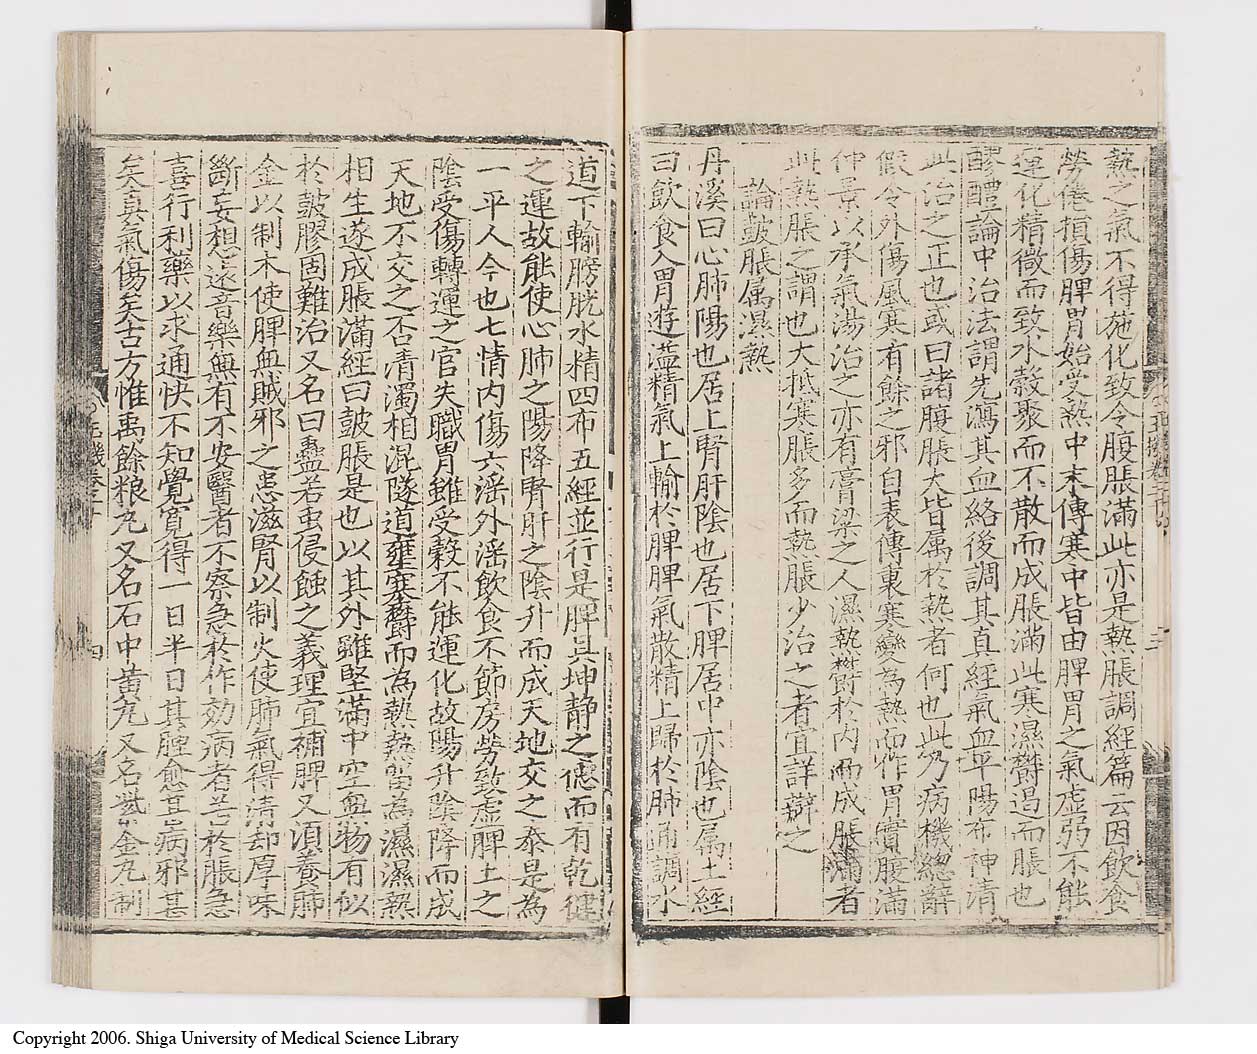 熱之氣不得施化致令腹脹滿此亦是熱脹調經篇云因飲食
勞倦損傷脾胃始受熱中末傳寒中皆由脾胃之氣虛弱不能
運化精微而致水穀聚而不散而成脹滿此寒濕欝遏而脹也
醪醴論中治法謂先瀉其血絡後調其真經氣血平陽布神清
此治之正也或曰諸腹脹大皆属於熱者何也此乃病機緫辭
假令外傷風寒有餘之邪自表傳裏寒變為熱而作胃實腹滿
仲景以承氣湯治之亦有膏梁之人濕熱欝於内而成脹滿者
此熱脹之謂也大抵寒脹多而熱脹少治之者宜詳辯之
論皷脹属濕熱
丹溪曰心肺陽也居上腎肝陰也居下脾居中亦陰也属土經
曰飲食入胃遊溢精氣上輸於脾脾氣散精上歸於肺通調水
道下輸膀胱水精四布五經並行是脾具坤静之德而有乾健
之運故能使心肺之陽降腎肝之陰升而成天地交之泰是為
一平人今也七情内傷六淫外淫飲食不節房勞致虛脾土之
陰受傷轉運之官失職胃雖受穀不能運化故陽升陰降而成
天地不交之否清濁相混隧道壅塞欝而為熱熱留為濕濕熱
相生遂成脹滿經曰皷脹是也以其外雖堅滿中空無物有似
於皷膠固難治又名曰蠱若虫侵蝕之義理宜補脾又須養肺
金以制木使脾無賊邪之患滋腎以制火使肺氣得清却厚味
斷妄想遠音樂無有不安醫者不察急於作効病者苦於脹急
喜行利藥以求通快不知覺寛得一日半日其腫愈甚病邪甚
矣真氣傷矣古方惟禹餘粮丸又名石中黄丸又名紫金丸制